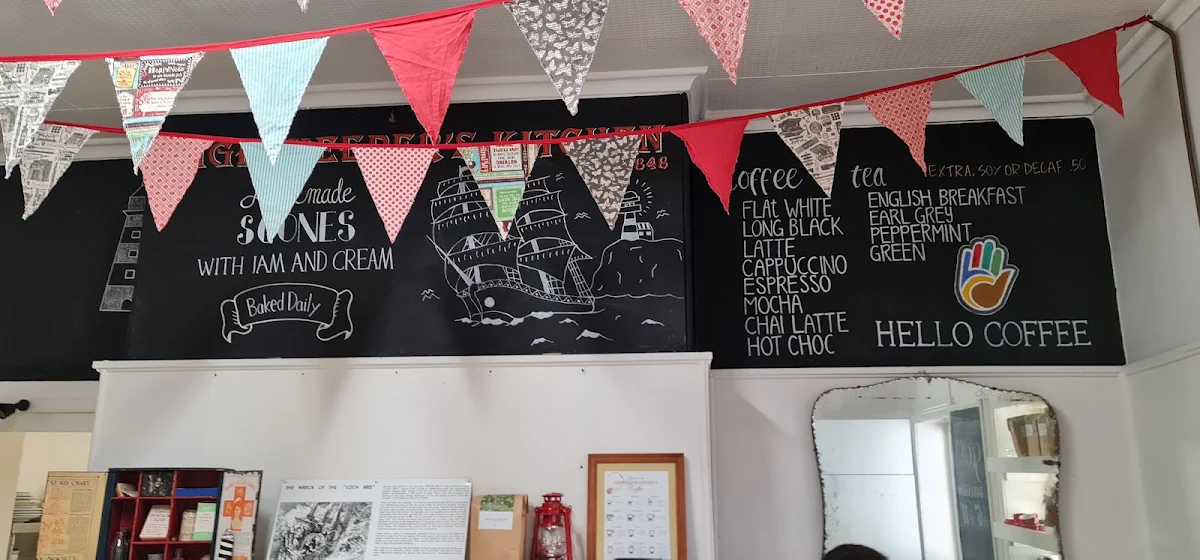 KEEPER'S KITCHEN
1848
SCONES
WITH JAM AND CREAM
Baked Daily
coffee
FLAT WHITE
LONG BLACK
LATTE
CAPPUCCINO
ESPRESSO
MOCHA
CHAI LATTE
HOT CHOC
tea
EXTRA, SOY OR DECAF .50
ENGLISH BREAKFAST
EARL GREY
PEPPERMINT
GREEN
HELLO COFFEE
THE WRECK OF THE "LOCH ARD"